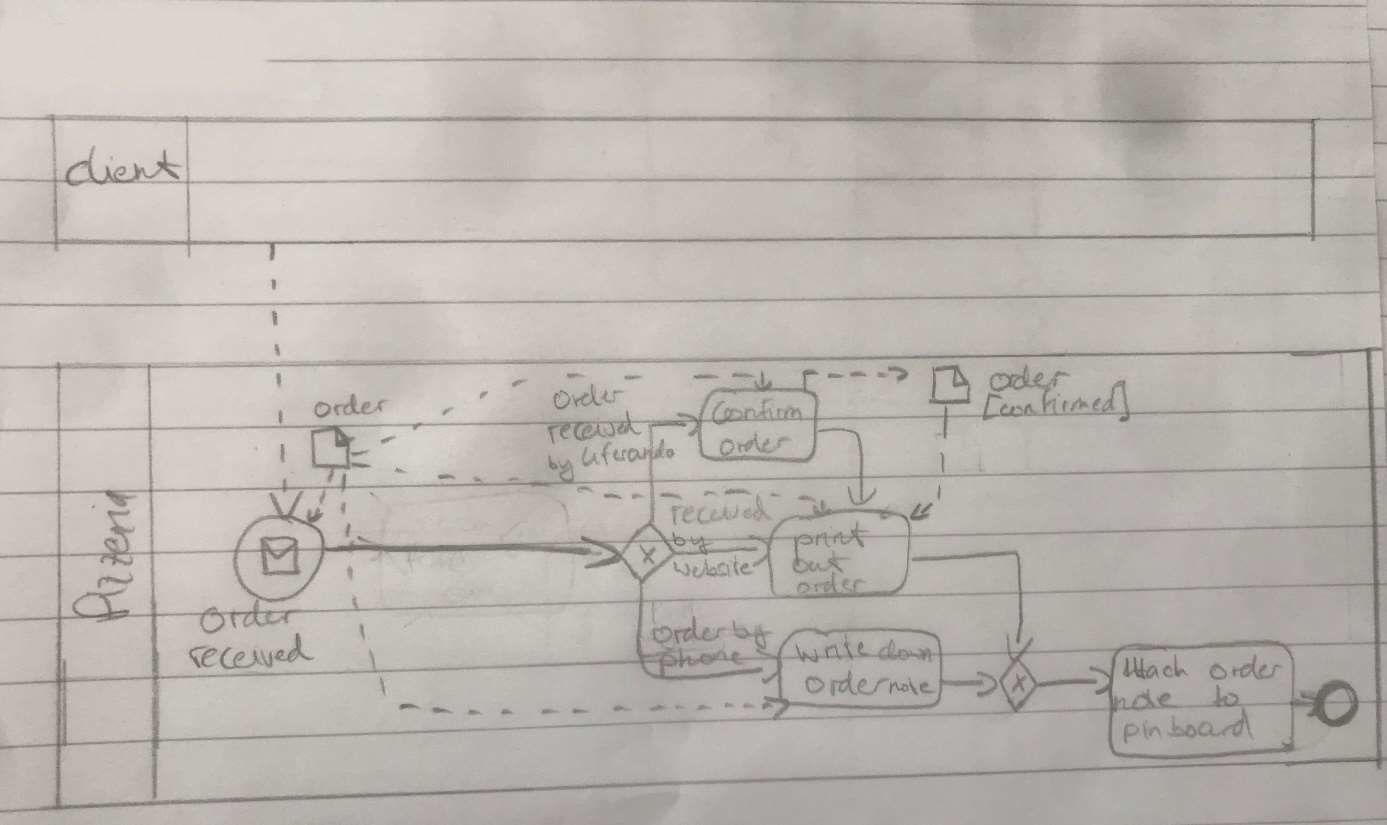 client
Pizzeria
order
order
received
order
received
by Liferando
Confirm
order
order
[confirmed]
received
by
website
print
out
order
order by
phone
write down
order note
Attach order
note to
pinboard